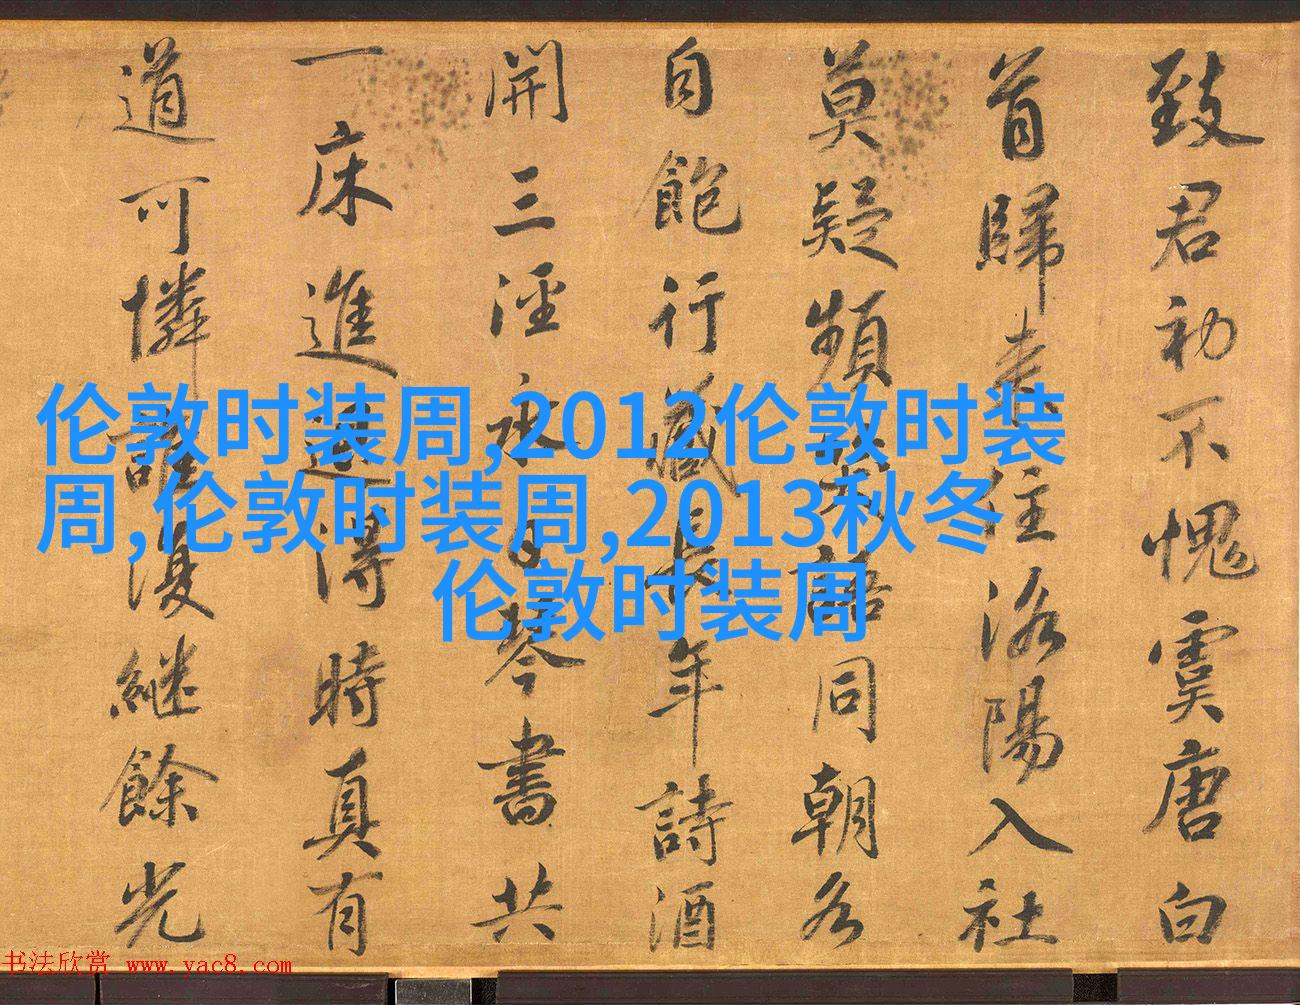 致君初不愧虞唐白
首歸来住洛陽入社
莫疑頻笑語同朝各
自飽行藏長年詩酒
開三涇永日琴書共
一床進退得時真有
道可憐誰復繼餘光
伦敦时装周,2012伦敦时装
周,伦敦时装周,2013秋冬
伦敦时装周
书法欣赏 www.yac8.com